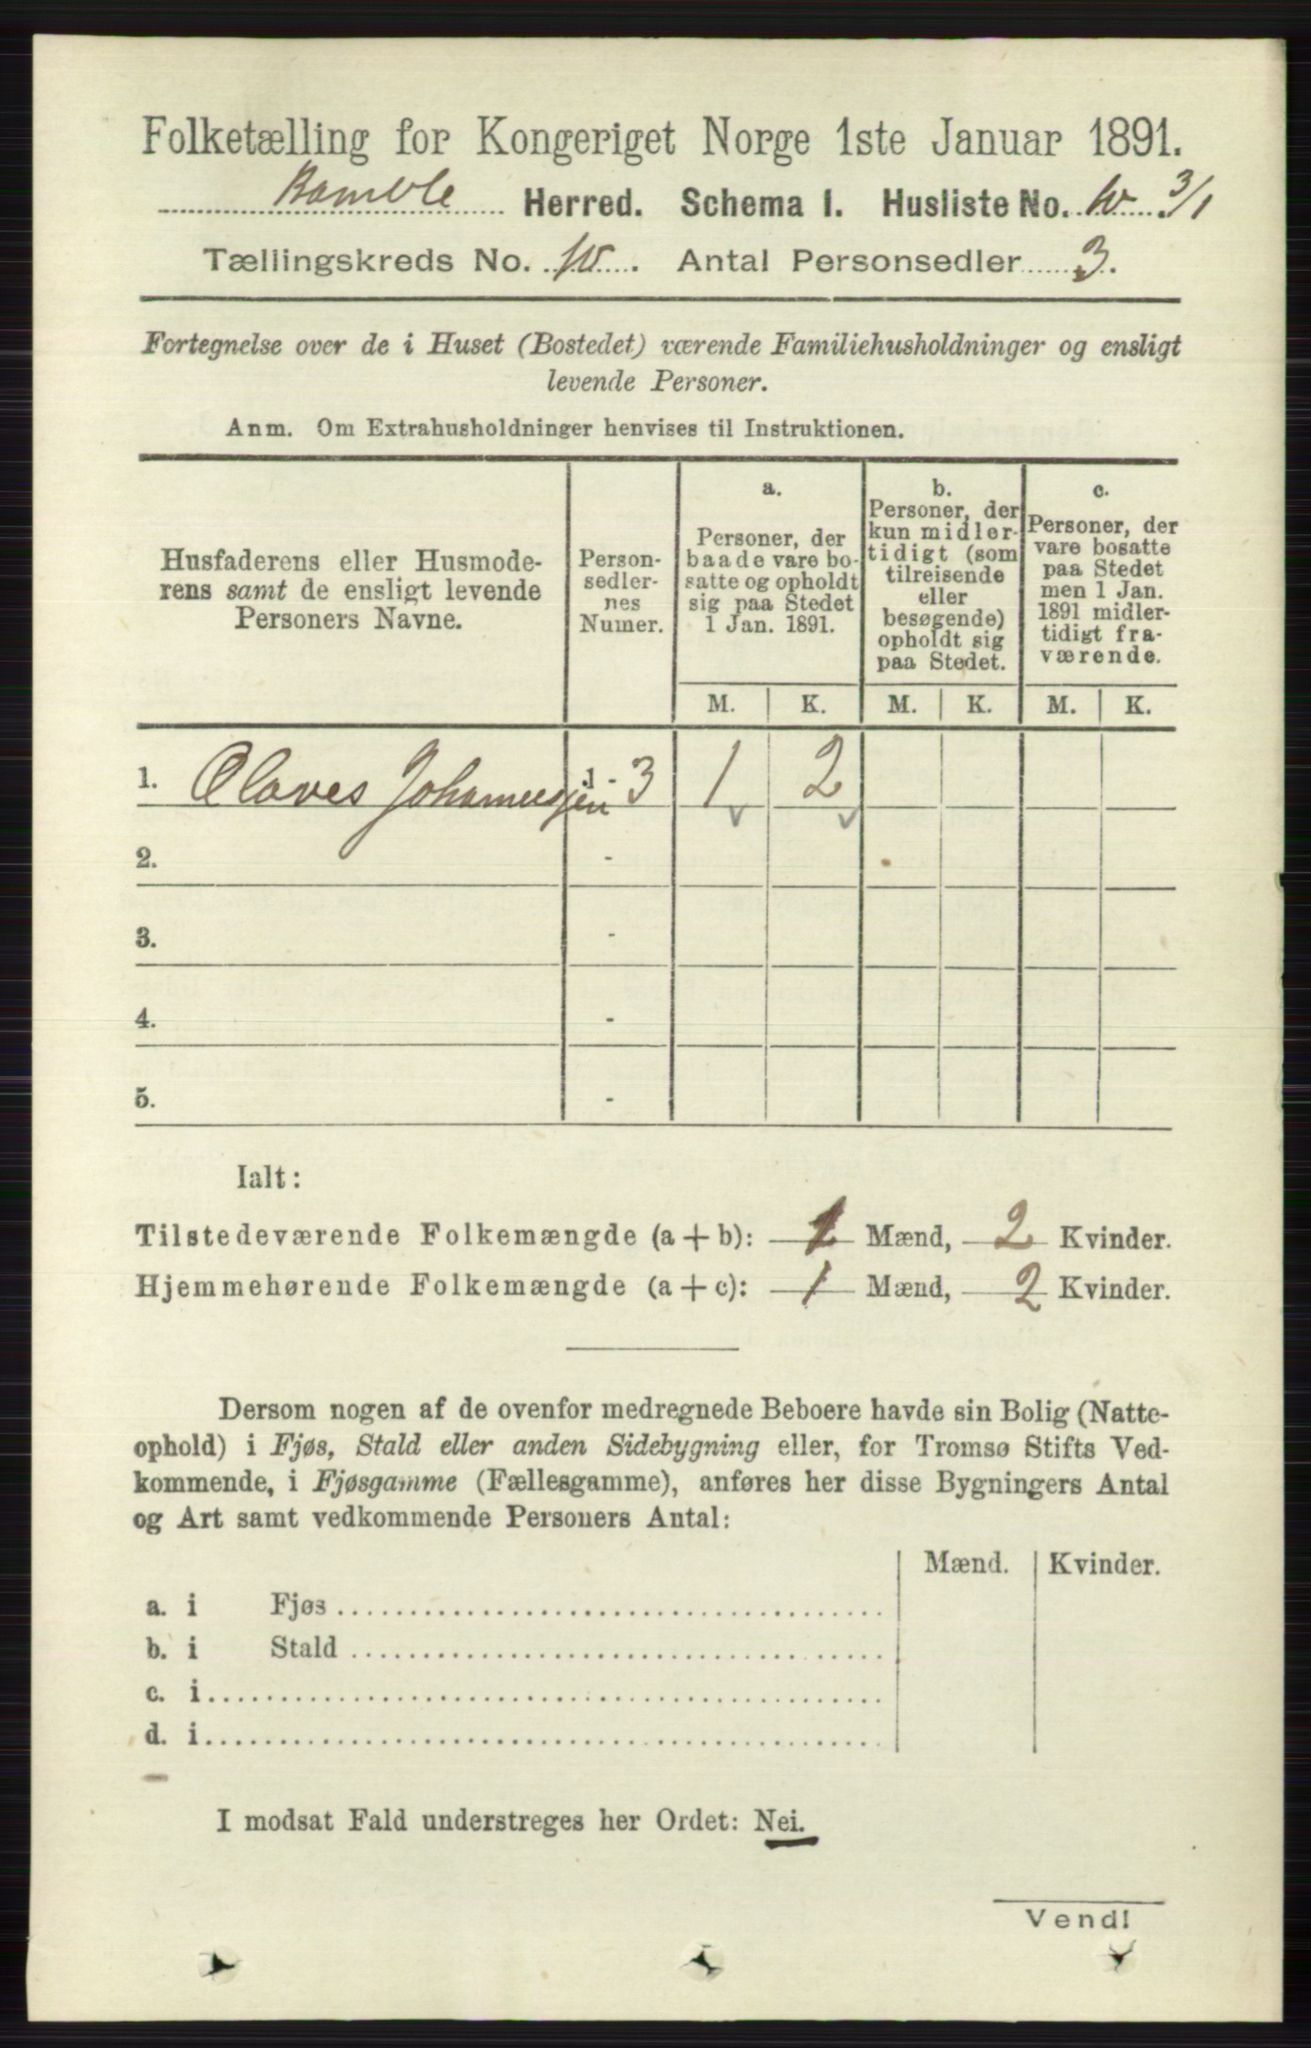 Folketælling for Kongeriget Norge 1ste Januar 1891.
Bamble Herred. Schema I. Husliste No. 10 3/1
Tællingskreds No. 10. Antal Personsedler 3.
Fortegnelse over de i Huset (Bostedet) værende Familiehusholdninger og ensligt
levende Personer.
Anm. Om Extrahusholdninger henvises til Instruktionen.
Husfaderens eller Husmode-
rens samt de ensligt levende
Personers Navne.
Person-
sedler-
nes
Numer.
a.
Personer, der
baade vare bo-
satte og opholdt
sig paa Stedet
1 Jan. 1891.
b.
Personer, der
kun midler-
tidigt (som
tilreisende
eller
besøgende)
opholdt sig
paa Stedet.
c.
Personer, der
vare bosatte
paa Stedet
men 1 Jan.
1891 midler-
tidigt fra-
værende.
M. K. M. K. M. K.
1. Olaves Johannessen 1 - 3 1 2
2. -
3. -
4. -
5. -
Ialt:
Tilstedeværende Folkemængde (a + b): 1 Mænd, 2 Kvinder.
Hjemmehørende Folkemængde (a + c): 1 Mænd, 2 Kvinder.
Dersom nogen af de ovenfor medregnede Beboere havde sin Bolig (Natte-
ophold) i Fjøs, Stald eller anden Sidebygning eller, for Tromsø Stifts Ved-
kommende, i Fjøsgamme (Fællesgamme), anføres her disse Bygningers Antal
og Art samt vedkommende Personers Antal:
Mænd. Kvinder.
a. i Fjøs
b. i Stald
c. i
d. i
I modsat Fald understreges her Ordet: Nei.
Vend!